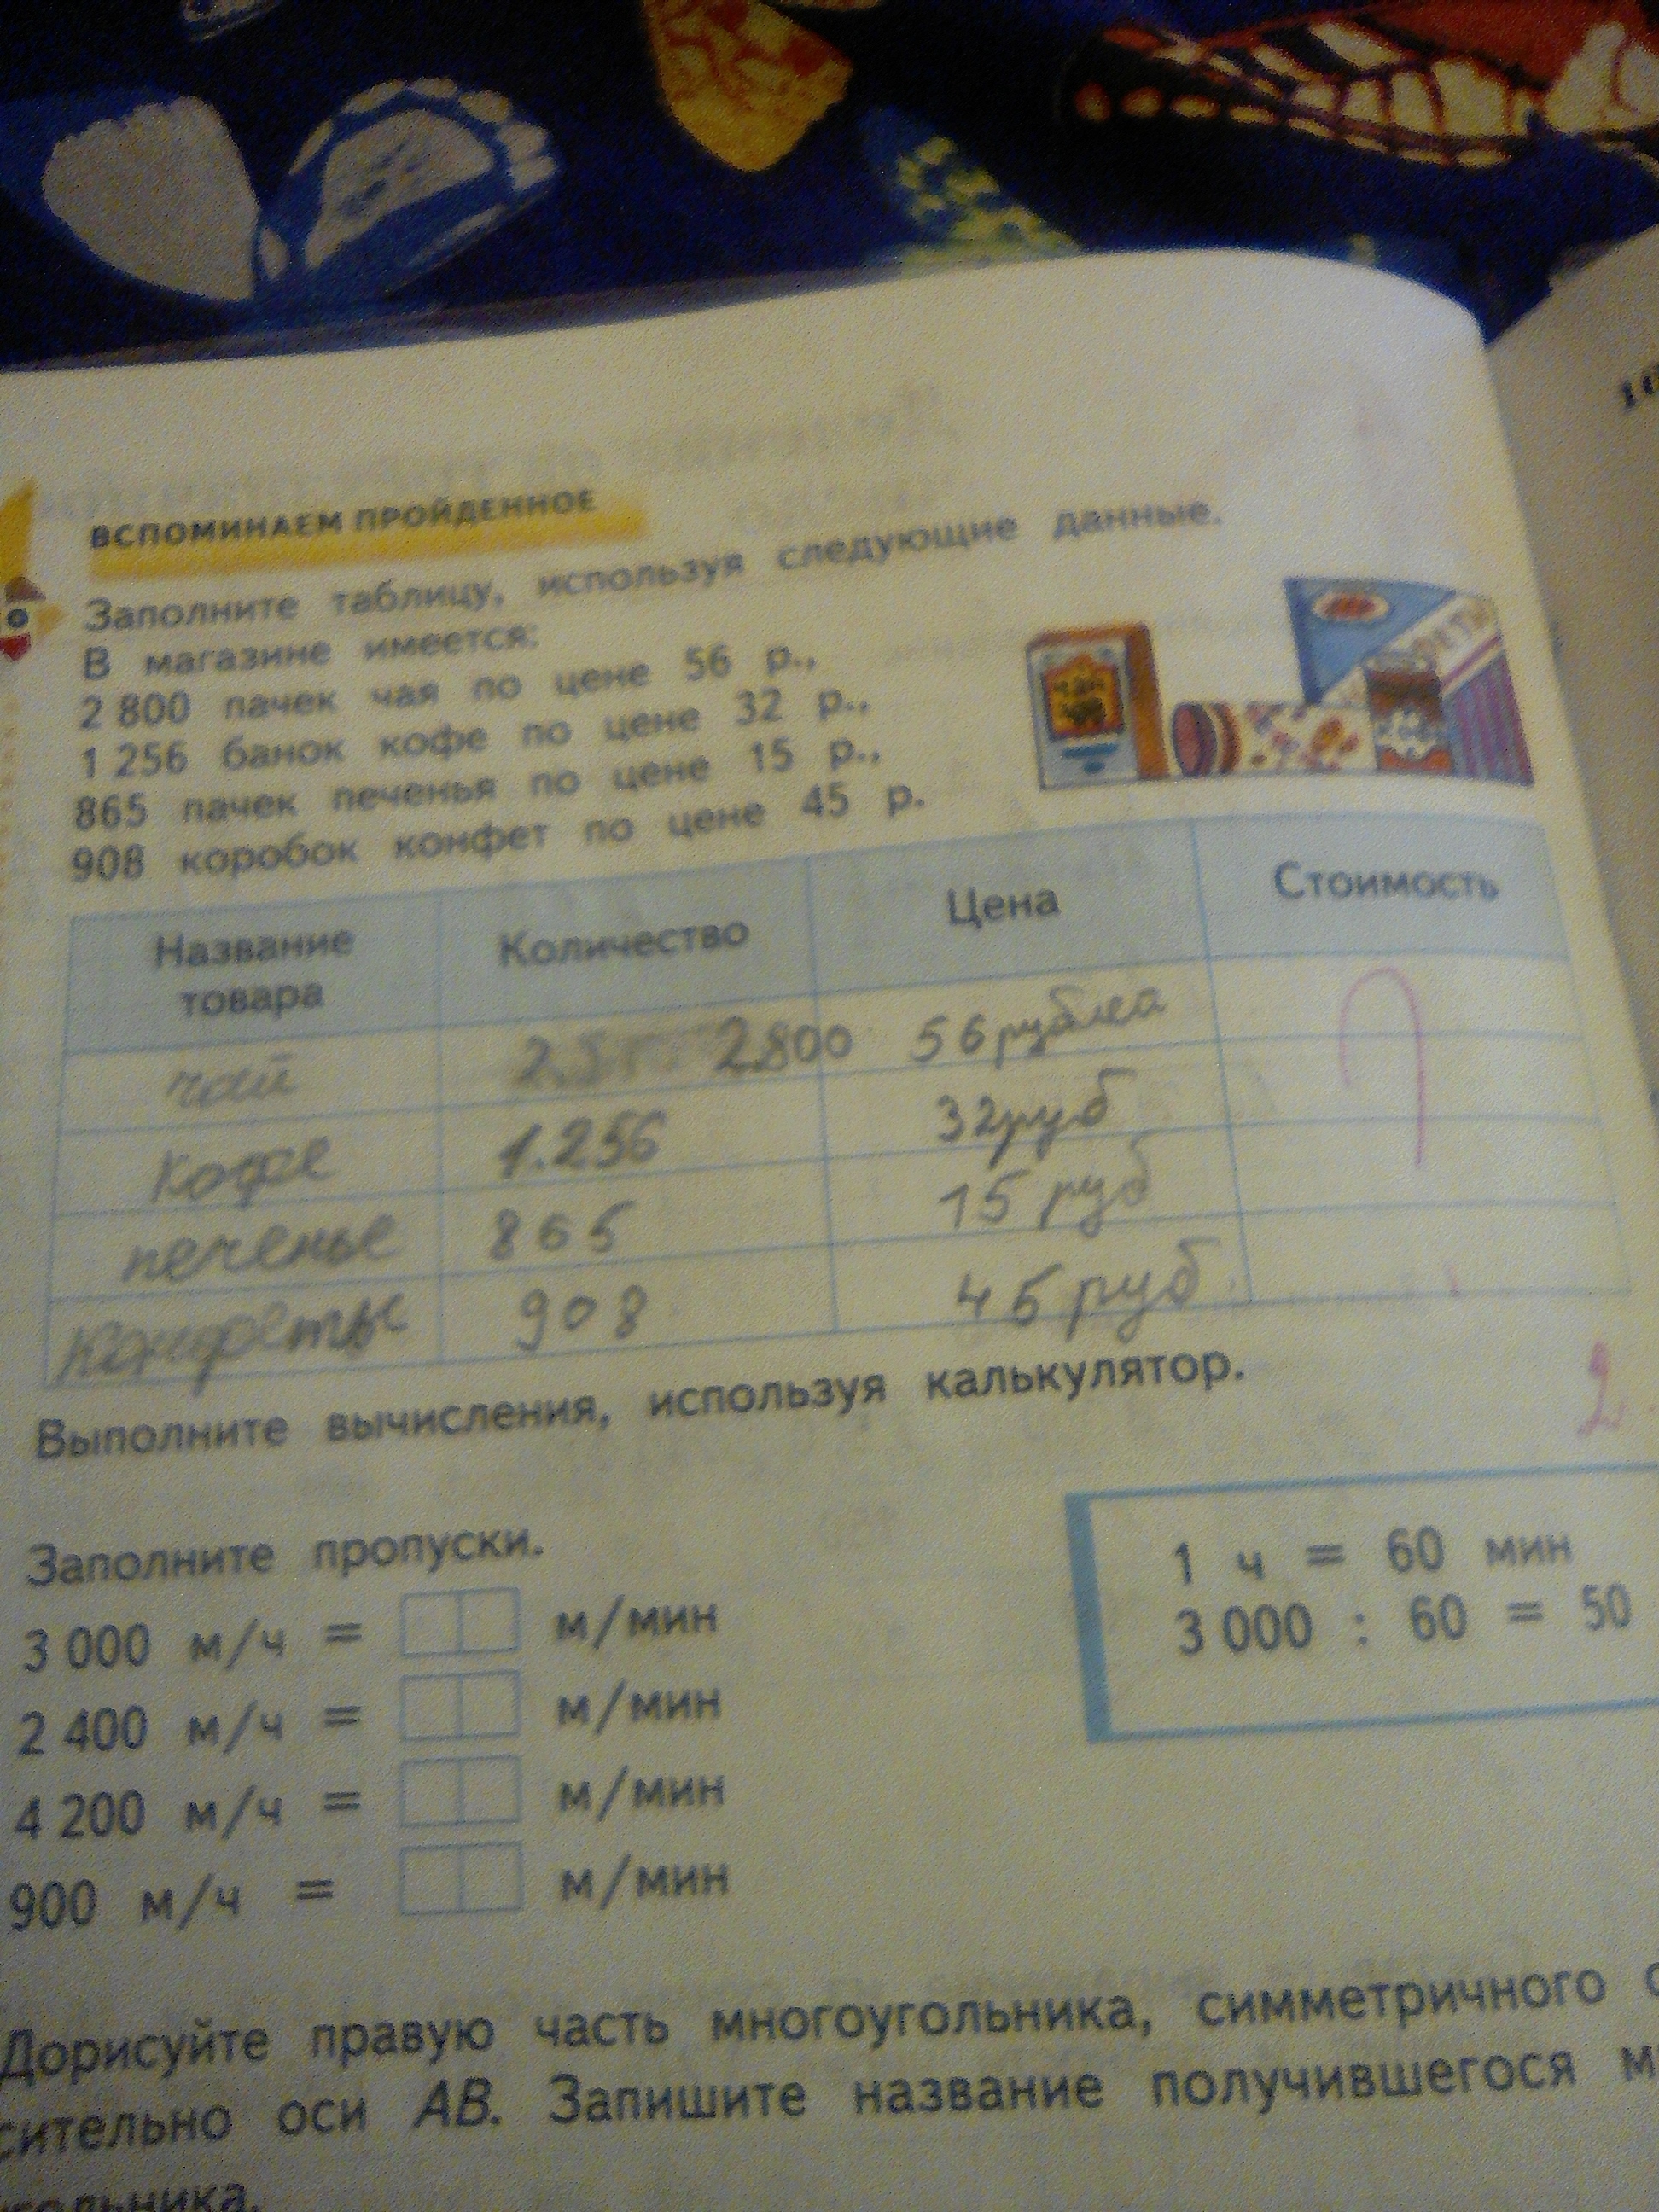 ВСПОМИНАЕМ ПРОЙДЕННОЕ
Заполните таблицу, используя следующие данные.
В магазине имеется:
2 800 пачек чая по цене 56 р.,
1 256 банок кофе по цене 32 р.,
865 пачек печенья по цене 15 р.,
908 коробок конфет по цене 45 р.
Название товара Количество Цена Стоимость
чай 2800 56 рублей
Кофе 1.256 32руб
печенье 865 15 руб
Конфеты 908 45 руб.
2
Выполните вычисления, используя калькулятор.
Заполните пропуски.
3 000 м/ч = м/мин
2 400 м/ч = м/мин
4 200 м/ч = м/мин
900 м/ч = м/мин
1 ч = 60 мин
3 000 : 60 = 50
Дорисуйте правую часть многоугольника, симметричного
сительно оси AB. Запишите название получившегося